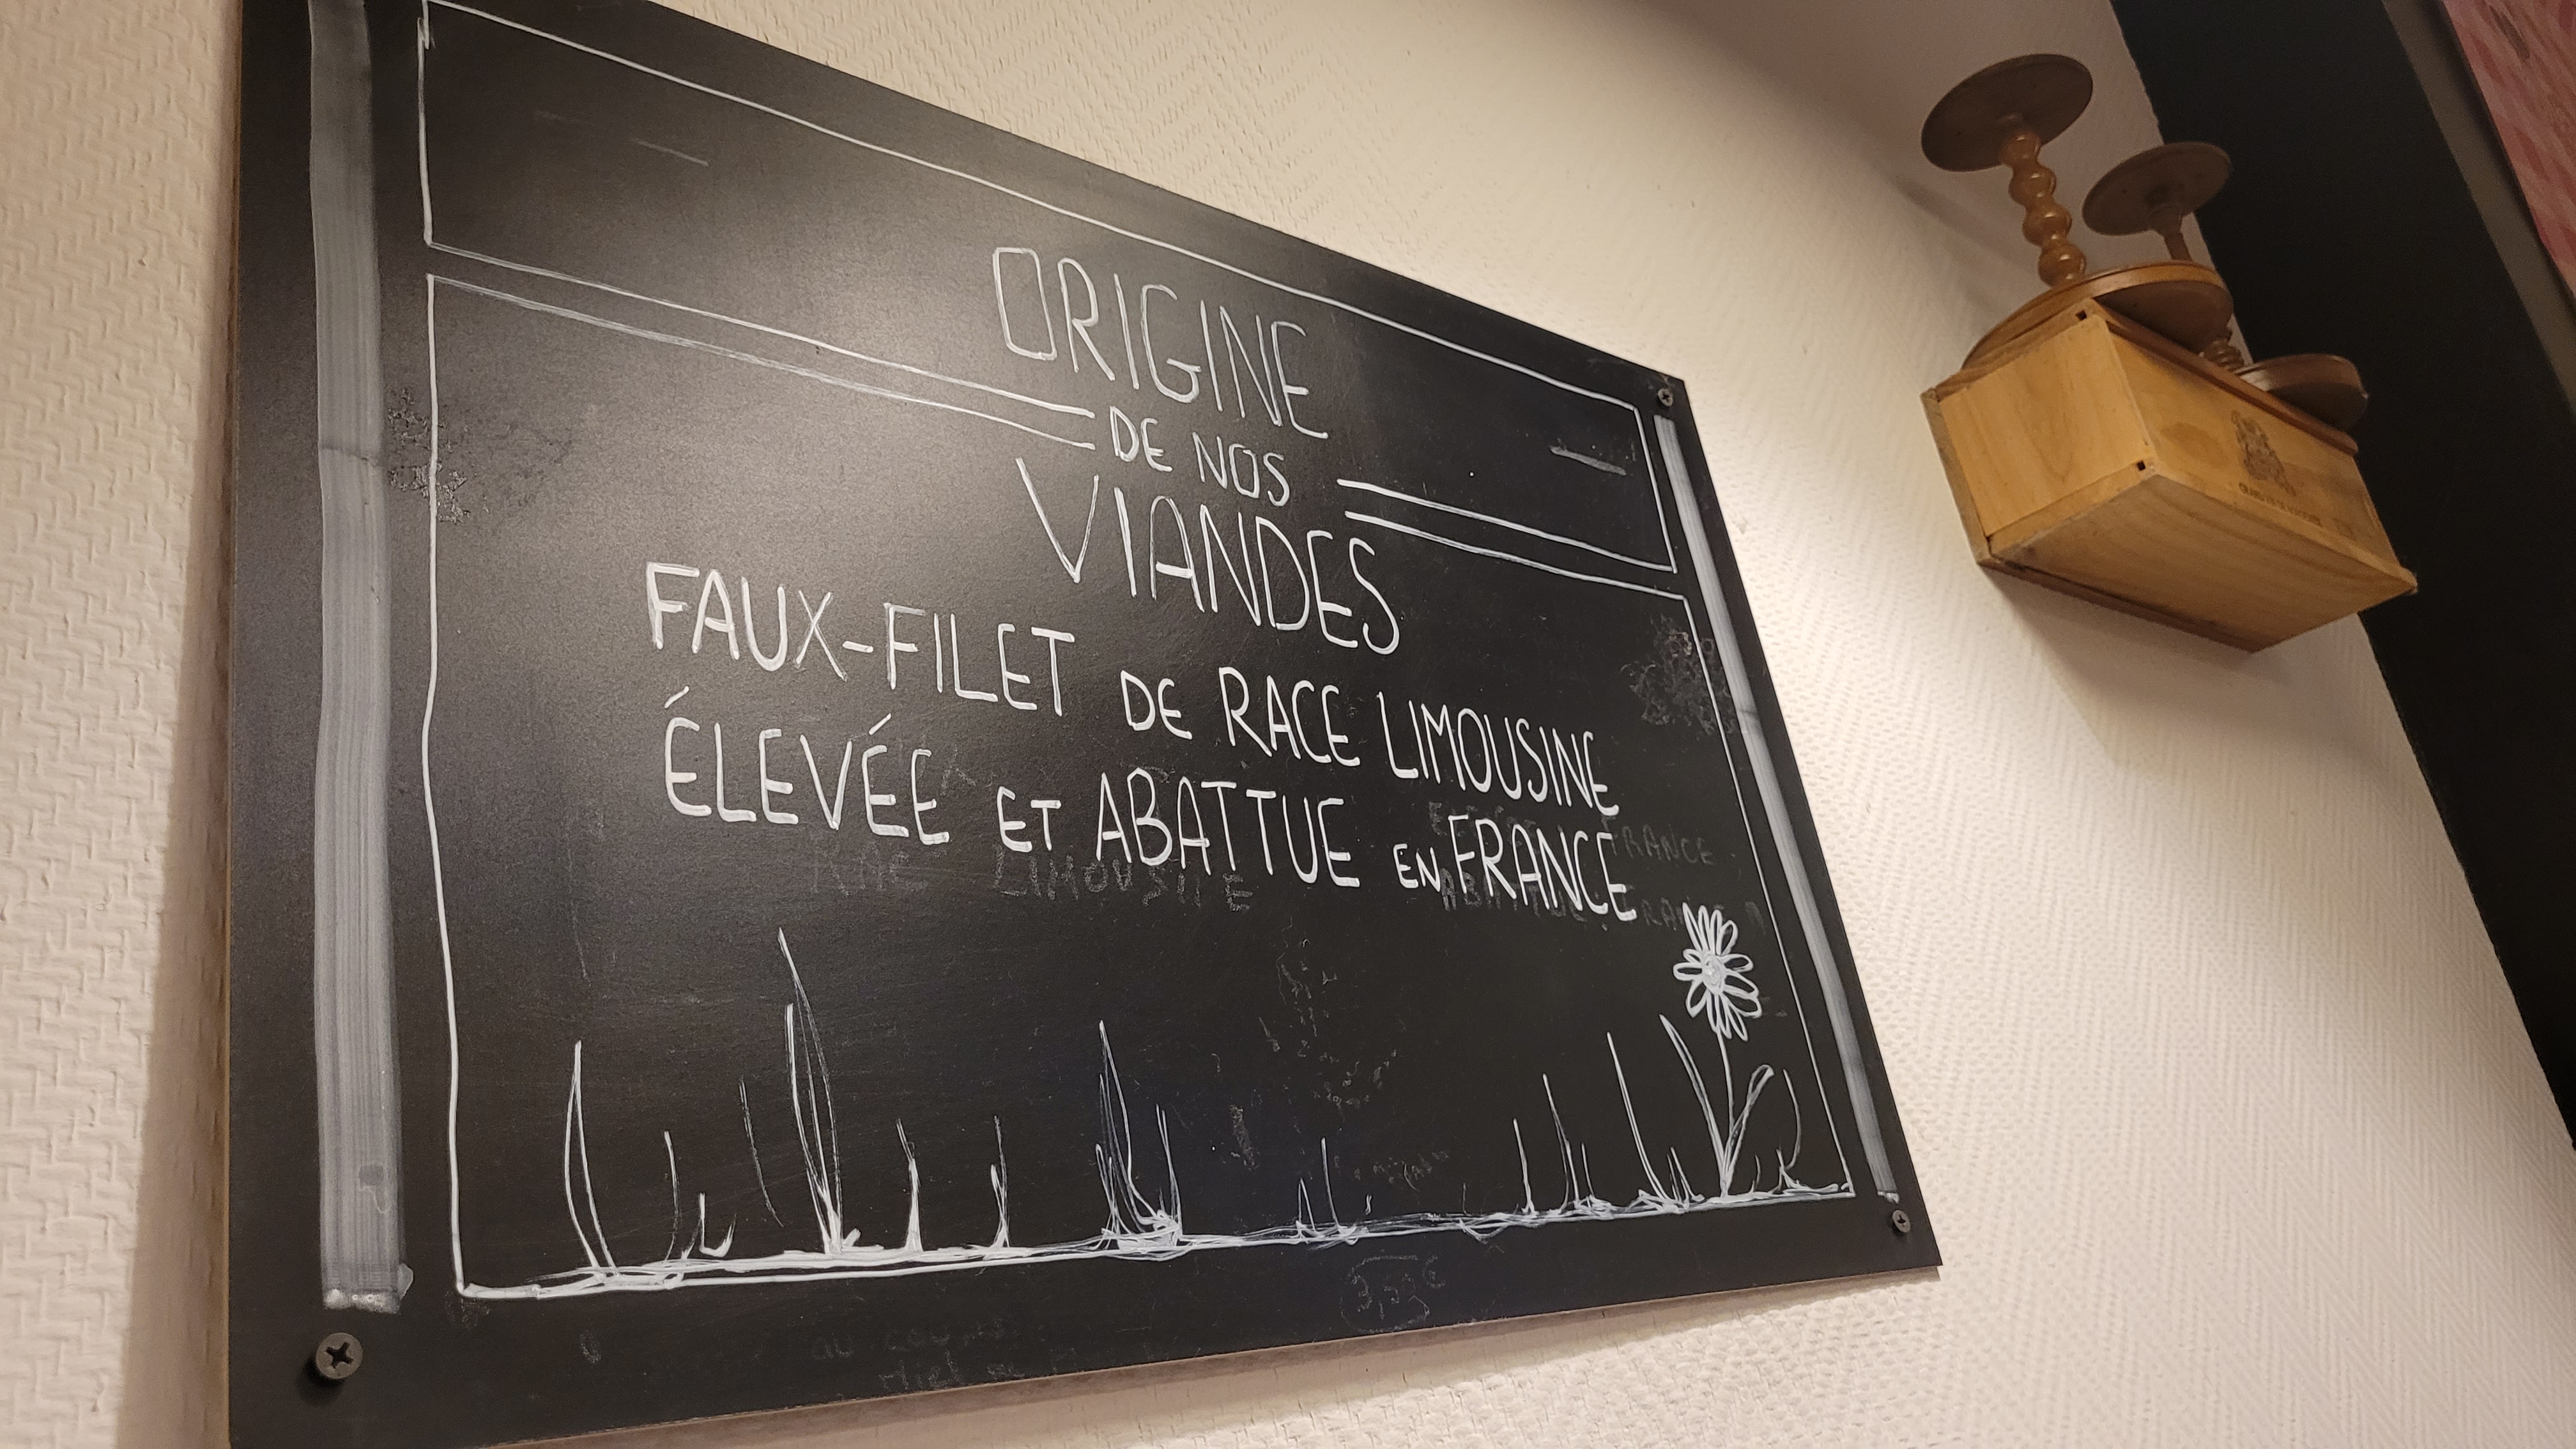 ORIGINE
DE NOS
VIANDES
FAUX-FILET DE RACE LIMOUSINE
ÉLEVÉE ET ABATTUE EN FRANCE